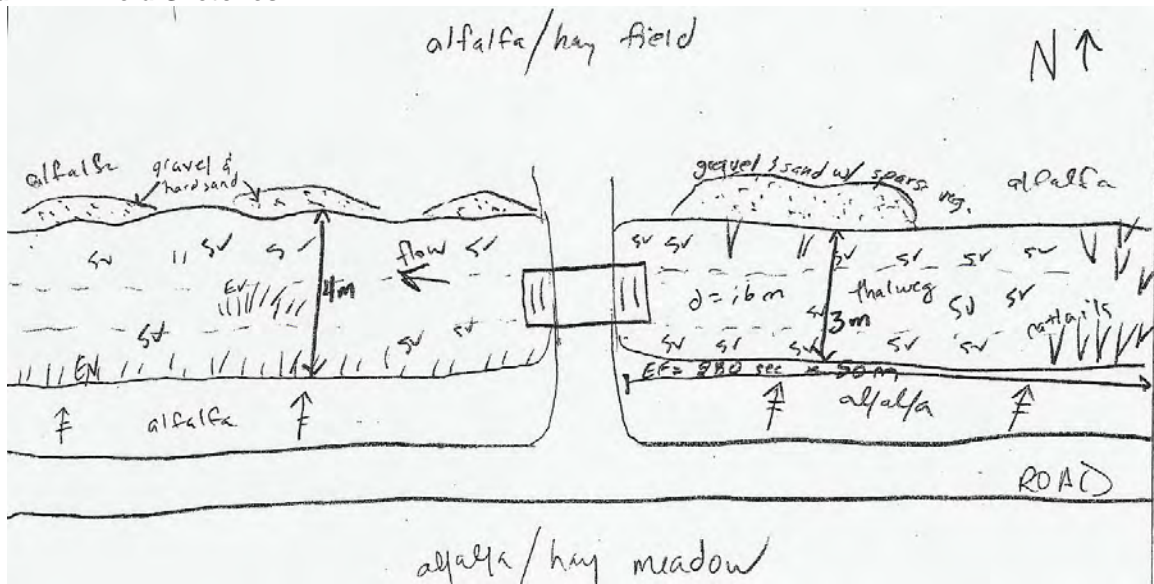 alfalfa/hay field
N
alfalfa
gravel &
hard sand
gravel & sand w/ sparse
veg.
alfalfa
SV
SV
SV
SV
SV
flow
EV
4m
SV
SV
SV
EV
SV
SV
SV
SV
SV
SV
d = .6 m
thalweg
3m
SV
SV
SV
SV
SV
SV
SV
SV
SV
cattails
EF = 280 sec = 50m
alfalfa
alfalfa
ROAD
alfalfa/hay meadow